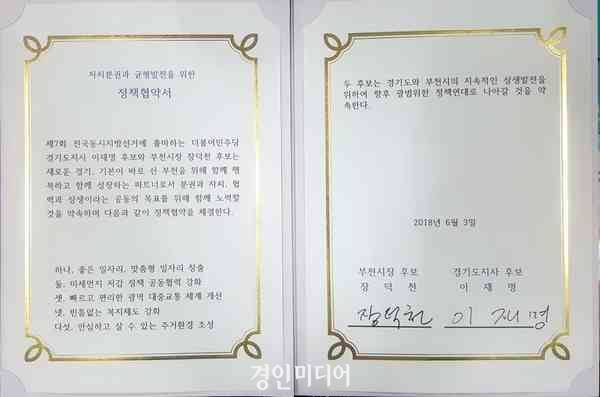 자치분권과 균형발전을 위한
정책협약서
제7회 전국동시지방선거에 출마하는 더불어민주당
경기도지사 이재명 후보와 부천시장 장덕천 후보는
새로운 경기, 기본이 바로 선 부천을 위해 함께 행
복하고 함께 성장하는 파트너로서 분권과 자치, 협
력과 상생이라는 공동의 목표를 위해 함께 노력할
것을 약속하며 다음과 같이 정책협약을 체결한다.
하나, 좋은 일자리, 맞춤형 일자리 창출
둘, 미세먼지 저감 정책 공동협력 강화
셋, 빠르고 편리한 광역 대중교통 체계 개선
넷, 빈틈없는 복지제도 강화
다섯, 안심하고 살 수 있는 주거환경 조성
두 후보는 경기도와 부천시의 지속적인 상생발전을
위하여 향후 광범위한 정책연대로 나아갈 것을 약
속한다.
2018년 6월 3일
부천시장 후보 경기도지사 후보
장 덕 천 이 재 명
장덕천 이재명
경인미디어